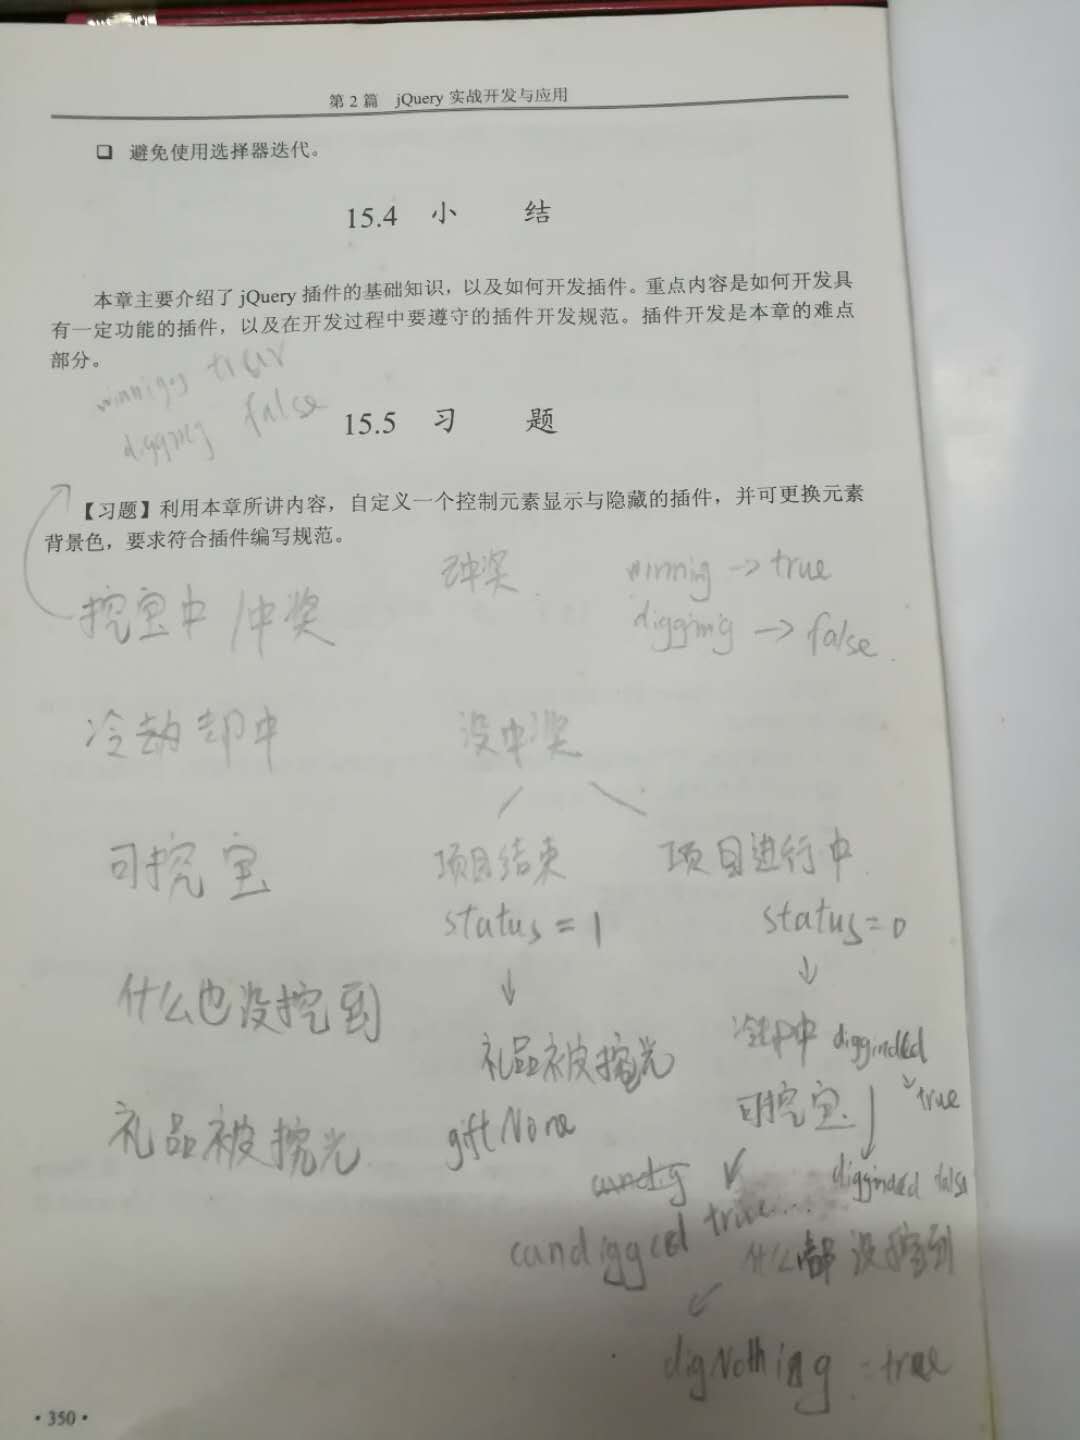 第 2 篇 jQuery 实战开发与应用
❑ 避免使用选择器迭代。
15.4 小 结
本章主要介绍了 jQuery 插件的基础知识，以及如何开发插件。重点内容是如何开发具
有一定功能的插件，以及在开发过程中要遵守的插件开发规范。插件开发是本章的难点
部分。
digging false
15.5 习 题
【习题】利用本章所讲内容，自定义一个控制元素显示与隐藏的插件，并可更换元素
背景色，要求符合插件编写规范。
挖宝中
winnig → true
digging → false
却中 没中奖
可挖宝 项目结束 项目进行中
status = 1 status = 0
什么也没挖到
礼品被挖光 冷却中 digginded
true
礼品被挖光 giftNone 可挖宝
digginded false
candigged true...
什么都没挖到
digNothing : true
·350·